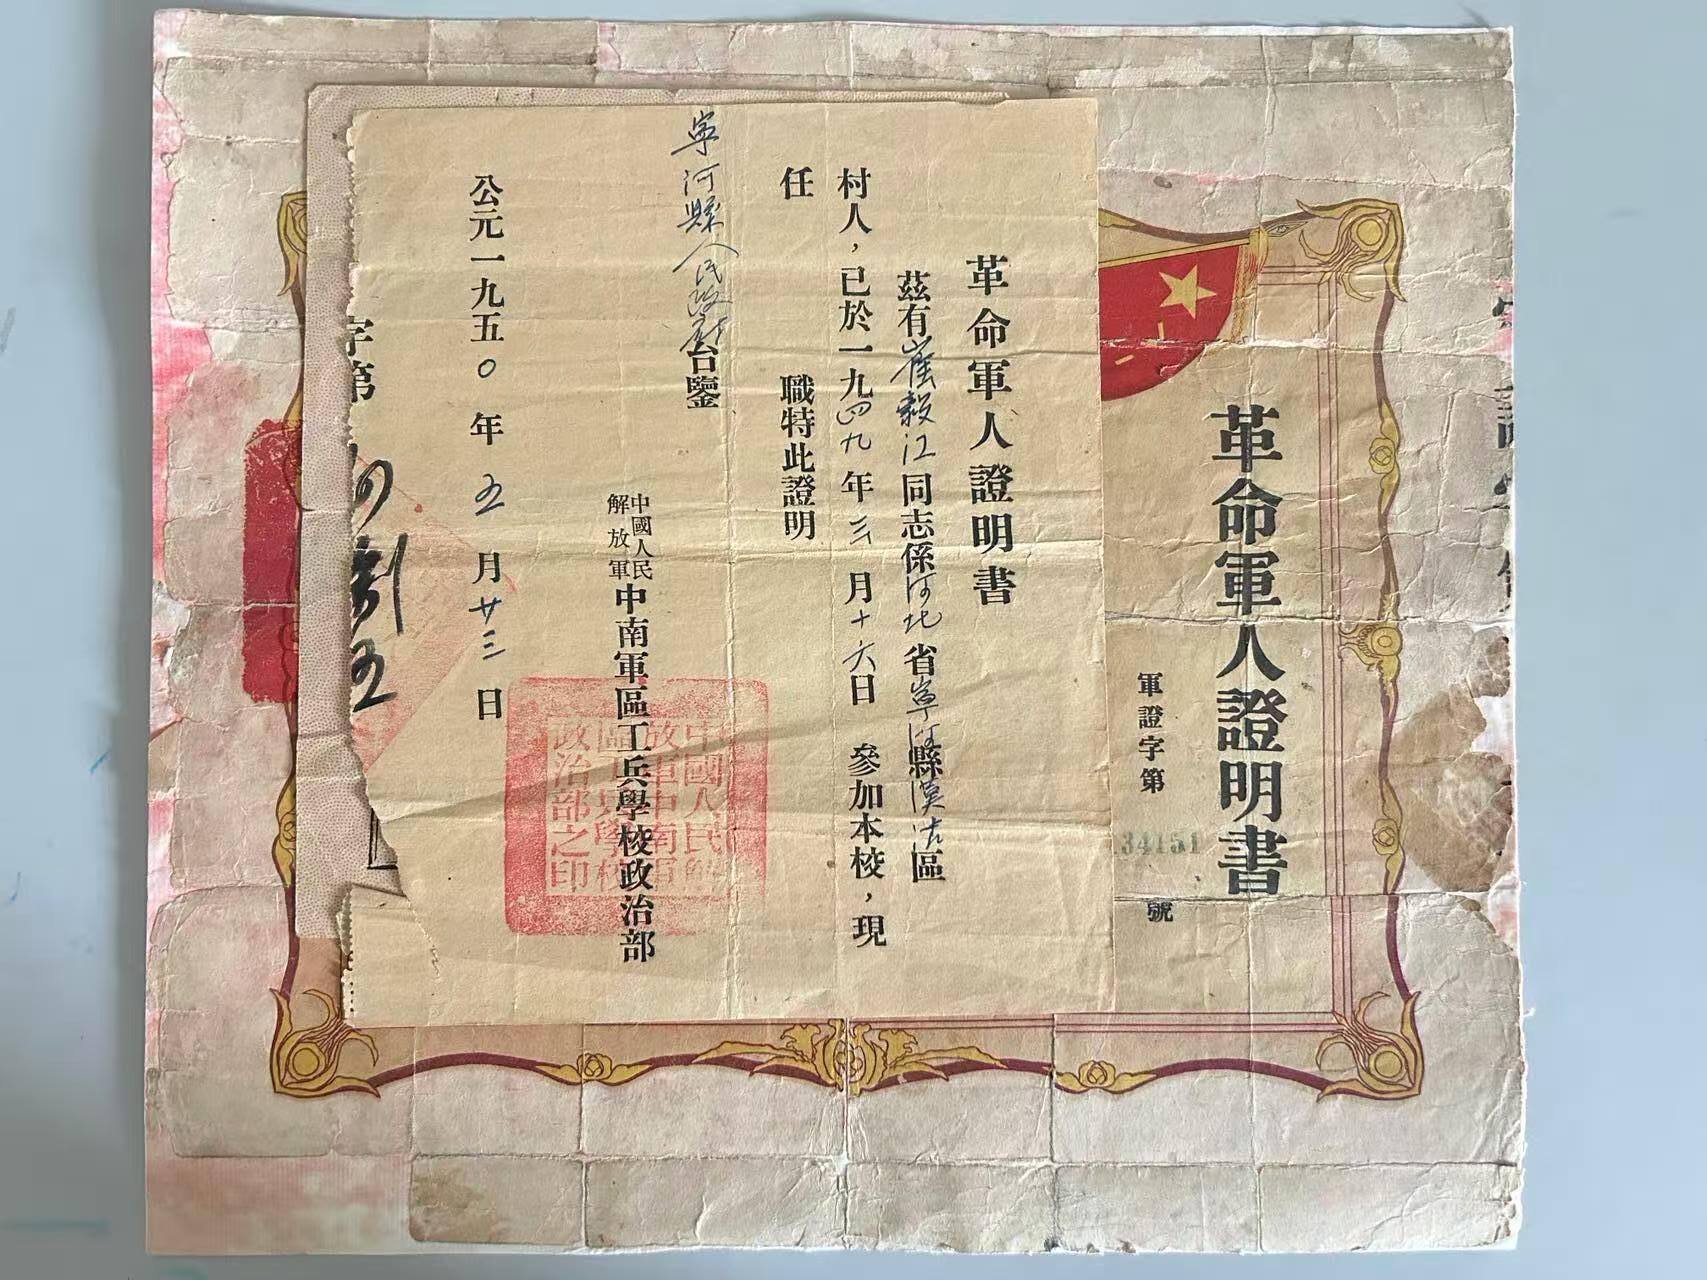 革命軍人證明書
軍證字第
34151
號
革命軍人證明書
茲有崔毅江同志係河北省寧河縣漢沽區
村人，已於一九四九年三月十六日 參加本校，現
任 職特此證明
寧河縣人民政府台鑒
中國人民
解放軍
中南軍區工兵學校政治部
中國人民解
放軍中南軍
區工兵學校
政治部之印
公元一九五〇年五月廿三日
字第